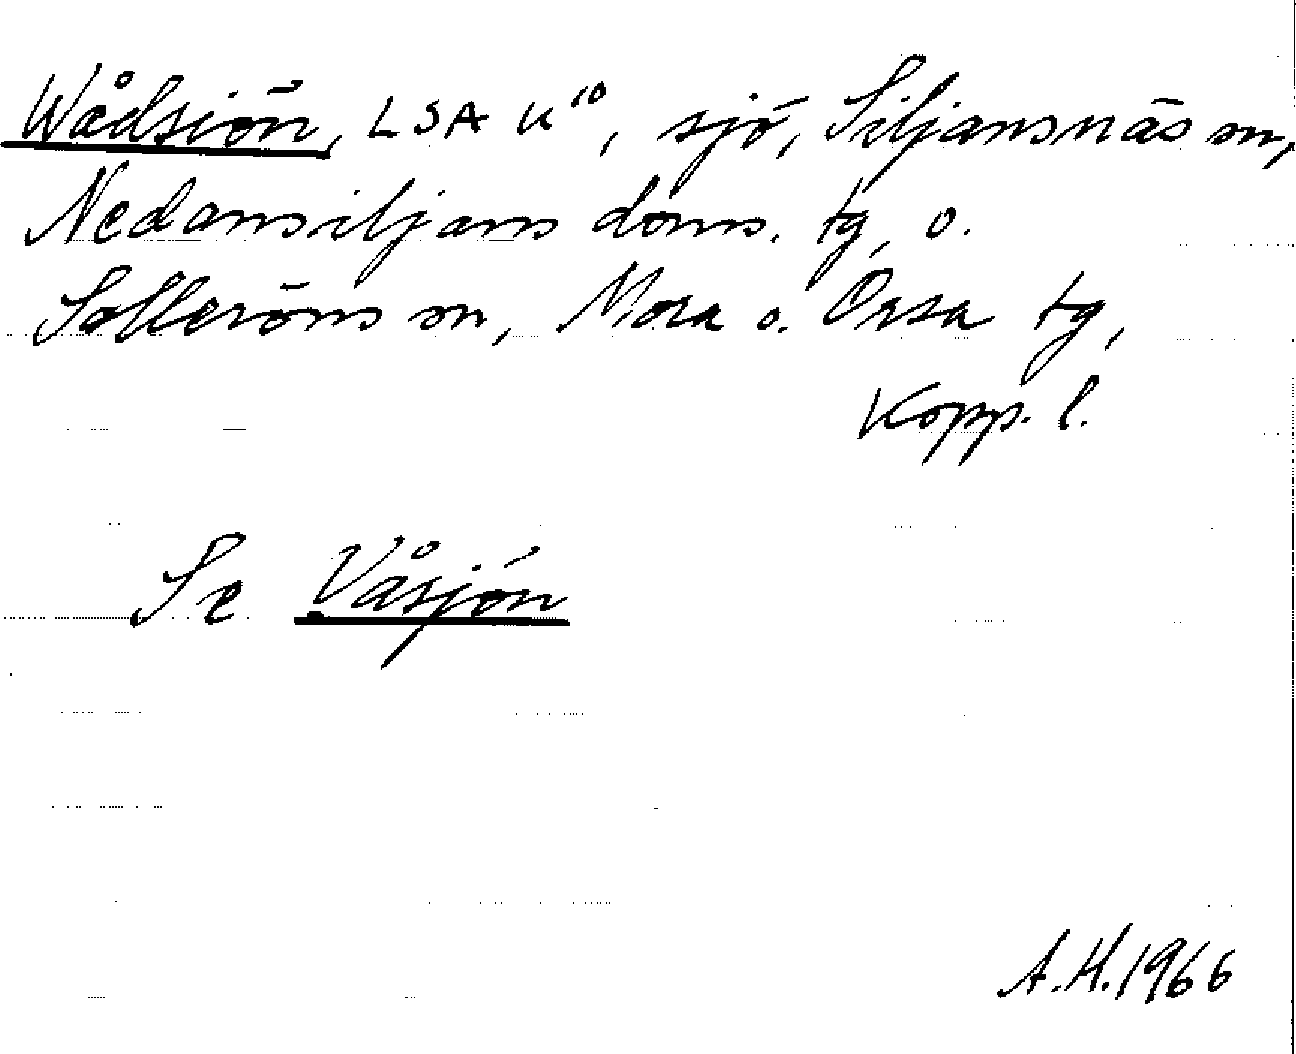 Wådsiön, LSA K¹⁰, sjö, Siljansnäs sn,
Nedansiljans doms. tg, o.
Solleröns sn, Mora o. Orsa tg,
Kopp. l.
Se Våsjön
A.H. 1966